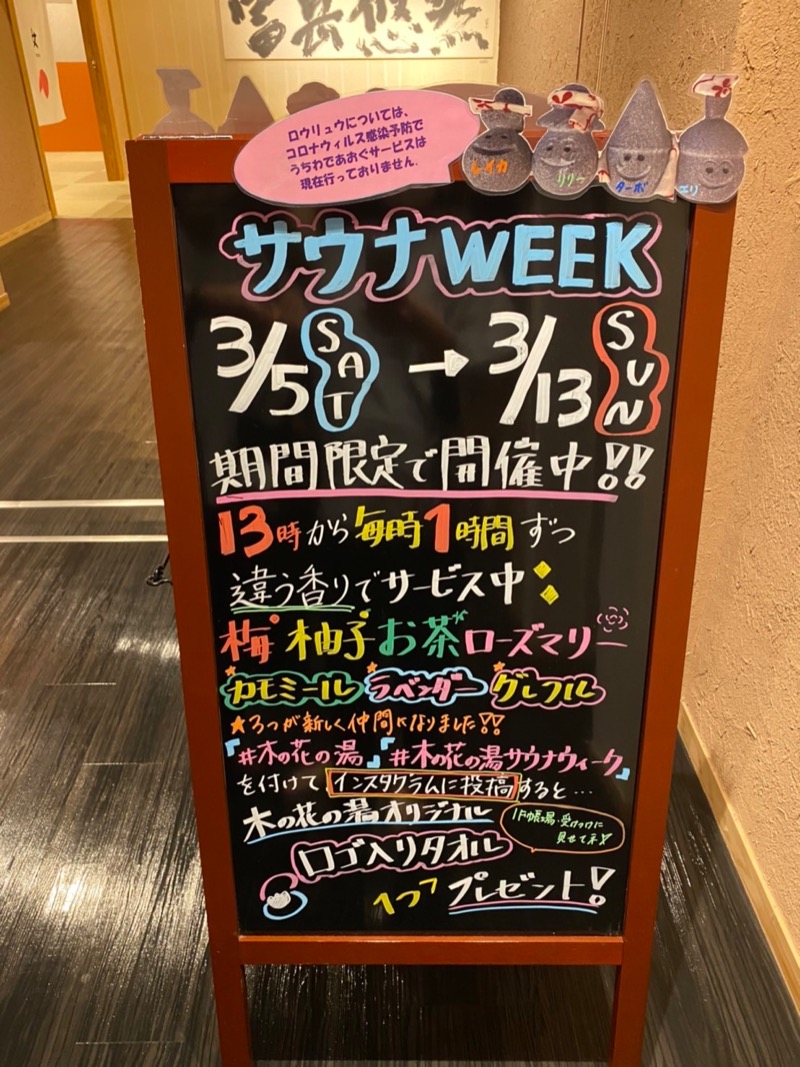 富岳悠然
ロウリュウについては、
コロナウィルス感染予防で
うちわであおぐサービスは
現在行っておりません.
レイカ リリー ターボ エリ
サウナWEEK
3/5 SAT → 3/13 SUN
期間限定で開催中!!
13時から毎時1時間ずつ
違う香りでサービス中
梅 柚子 お茶 ローズマリー
カモミール ラベンダー グレフル
★3つが新しく仲間になりました!!
「#木の花の湯」「#木の花の湯サウナウィーク」
を付けて、インスタグラムに投稿すると…
木の花の湯オリジナル
1F帳場・受けつけに
見せてネ!
ロゴ入りタオル
1つ プレゼント!